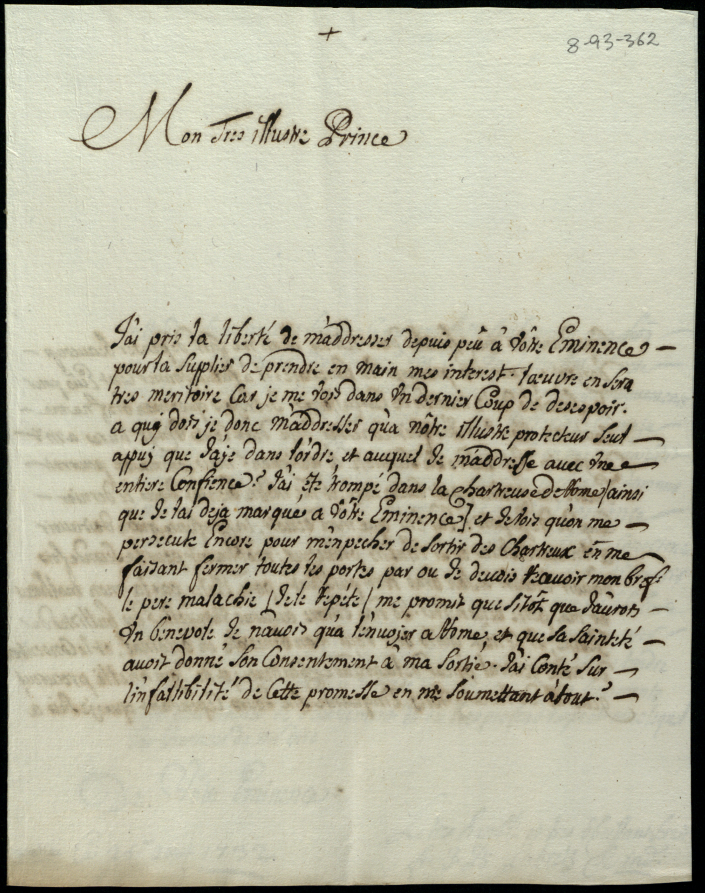 +
8-93-362
Mon Tres illustre Prince
J'ai pris la liberté de m'addresser depuis peû à Vôtre Eminence —
pour la suplier de prendre en main mes interest. l'œuvre en sera
tres meritoire Car je me vois dans Un dernier Coup de desespoir.
a quy dois je donc m'addresser qu'a nôtre illustre protecteur seul —
appuy que j'aÿe dans l'ordre et auquel Je m'addresse avec Une
entiere Confience? J'ai été trompé dans la chartreuse de Rome / ainsi
que Je l'ai deja marqué a Vôtre Eminence] et Je vois qu'on me —
persecute Encore pour m'enpecher de sortir des Chartreux en me
faisant fermer toutes les portes par ou Je devois recevoir mon bref.
le pere malachie [Je le repete / me promit que sitôt que J'aurois —
Un benevole Je n'avois qu'a l'envojer a Rome, et que sa Sainteté —
avoit donné son Consentement à ma sortie. J'ai Conté sur —
l'infallibilité de Cette promesse en me soumettant à tout? —